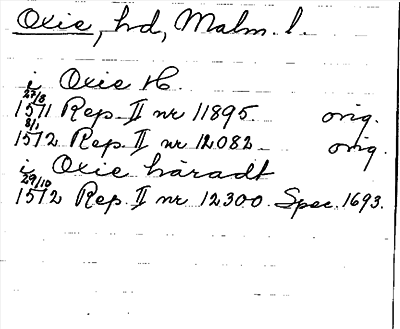 Oxie, hd, Malm. l.
i Oxie H.
27/8
1511 Rep. II nr 11895 orig.
8/1
1512 Rep. II nr 12082 orig.
i Oxie häradt
29/10
1512 Rep. II nr 12300 Spec. 1693.